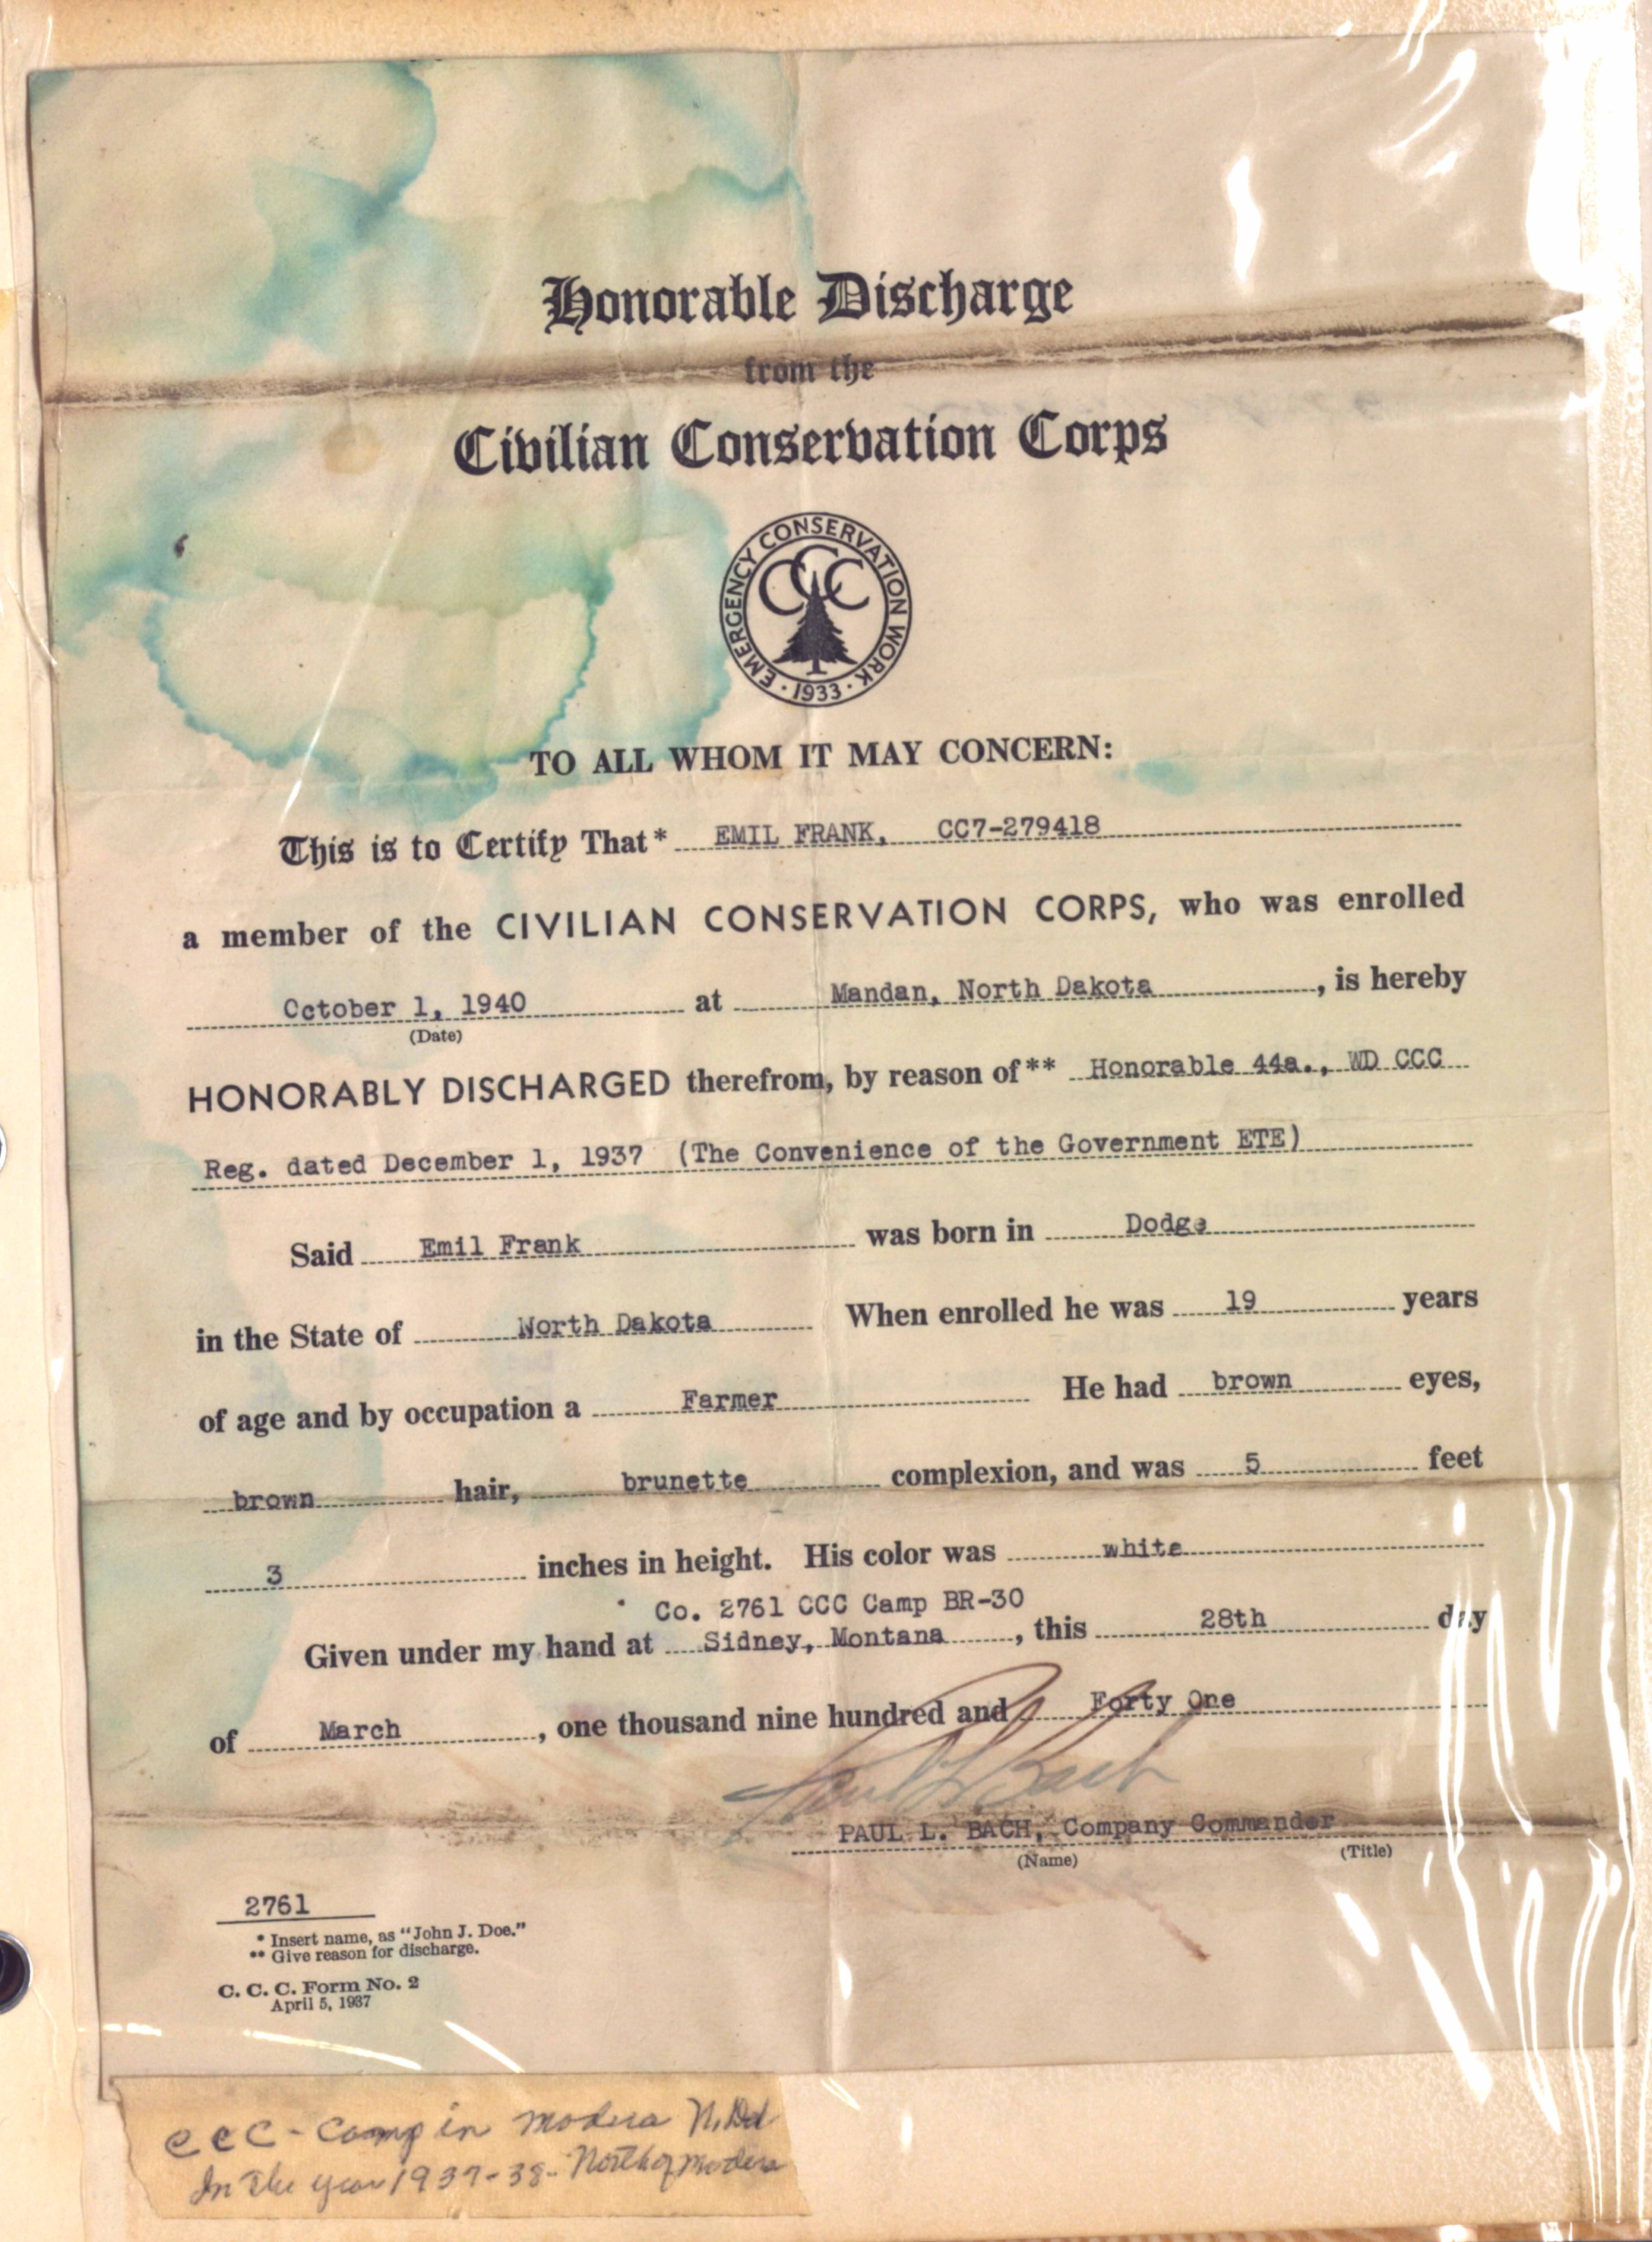 Honorable Discharge
from the
Civilian Conservation Corps
EMERGENCY CONSERVATION WORK
CCC
· 1933 ·
TO ALL WHOM IT MAY CONCERN:
This is to Certify That* EMIL FRANK, CC7-279418
a member of the CIVILIAN CONSERVATION CORPS, who was enrolled
October 1, 1940 at Mandan, North Dakota, is hereby
(Date)
HONORABLY DISCHARGED therefrom, by reason of** Honorable 44a., WD CCC
Reg. dated December 1, 1937 (The Convenience of the Government ETE)
Said Emil Frank was born in Dodge
in the State of North Dakota When enrolled he was 19 years
of age and by occupation a Farmer He had brown eyes,
brown hair, brunette complexion, and was 5 feet
3 inches in height. His color was white
Co. 2761 CCC Camp BR-30
Given under my hand at Sidney, Montana, this 28th day
of March, one thousand nine hundred and Forty One
Paul L Bach
PAUL L. BACH, Company Commander
(Name) (Title)
2761
* Insert name, as "John J. Doe."
** Give reason for discharge.
C. C. C. Form No. 2
April 5, 1937
CCC - Camp in N.
In the year 1937-38- North of